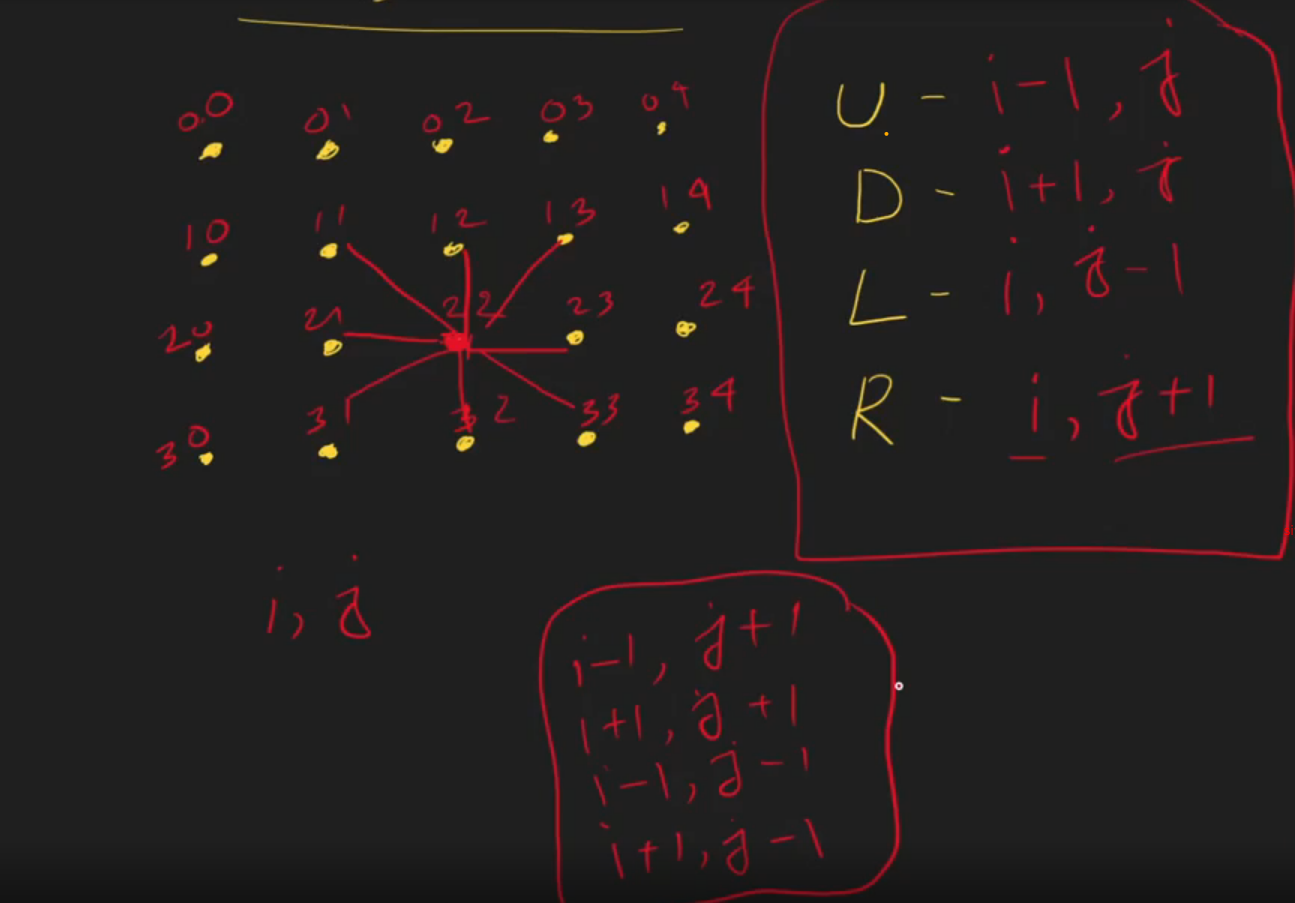 00 01 02 03 04
10 11 12 13 14
20 21 22 23 24
30 31 32 33 34
U - i-1, j
D - i+1, j
L - i, j-1
R - i, j+1
i, j
i-1, j+1
i+1, j+1
i-1, j-1
i+1, j-1